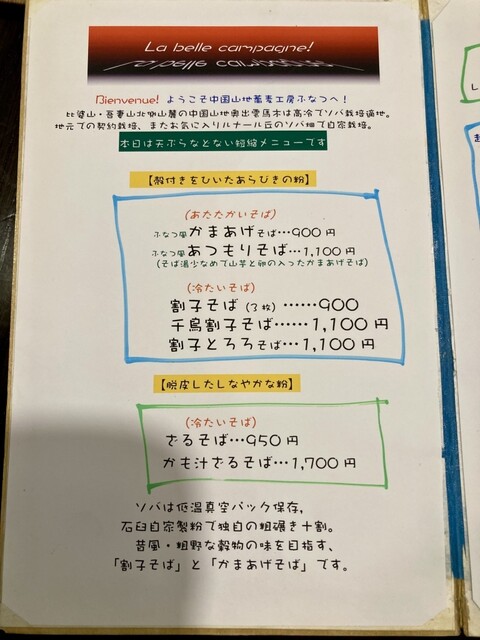 La belle campagne!
Bienvenue! ようこそ中国山地蕎麦工房ふなつへ!
比婆山・吾妻山北側山麓の中国山地奥出雲馬木は高冷でソバ栽培適地。
地元での契約栽培、またお気に入りルナール丘のソバ畑で自家栽培。
本日は天ぷらなどない短縮メニューです
【殻付きをひいたあらびきの粉】
(あたたかいそば)
ふなつ風 かまあげそば…900円
ふなつ風 あつもりそば…1,100円
(そば湯少なめで山芋と卵の入ったかまあげそば)
(冷たいそば)
割子そば(3枚)……900
千鳥割子そば……1,100円
割子とろろそば…1,100円
【脱皮したしなやかな粉】
(冷たいそば)
ざるそば…950円
かも汁ざるそば…1,700円
ソバは低温真空パック保存,
石臼自家製粉で独自の粗碾き十割。
昔風・粗野な穀物の味を目指す、
「割子そば」と「かまあげそば」です。